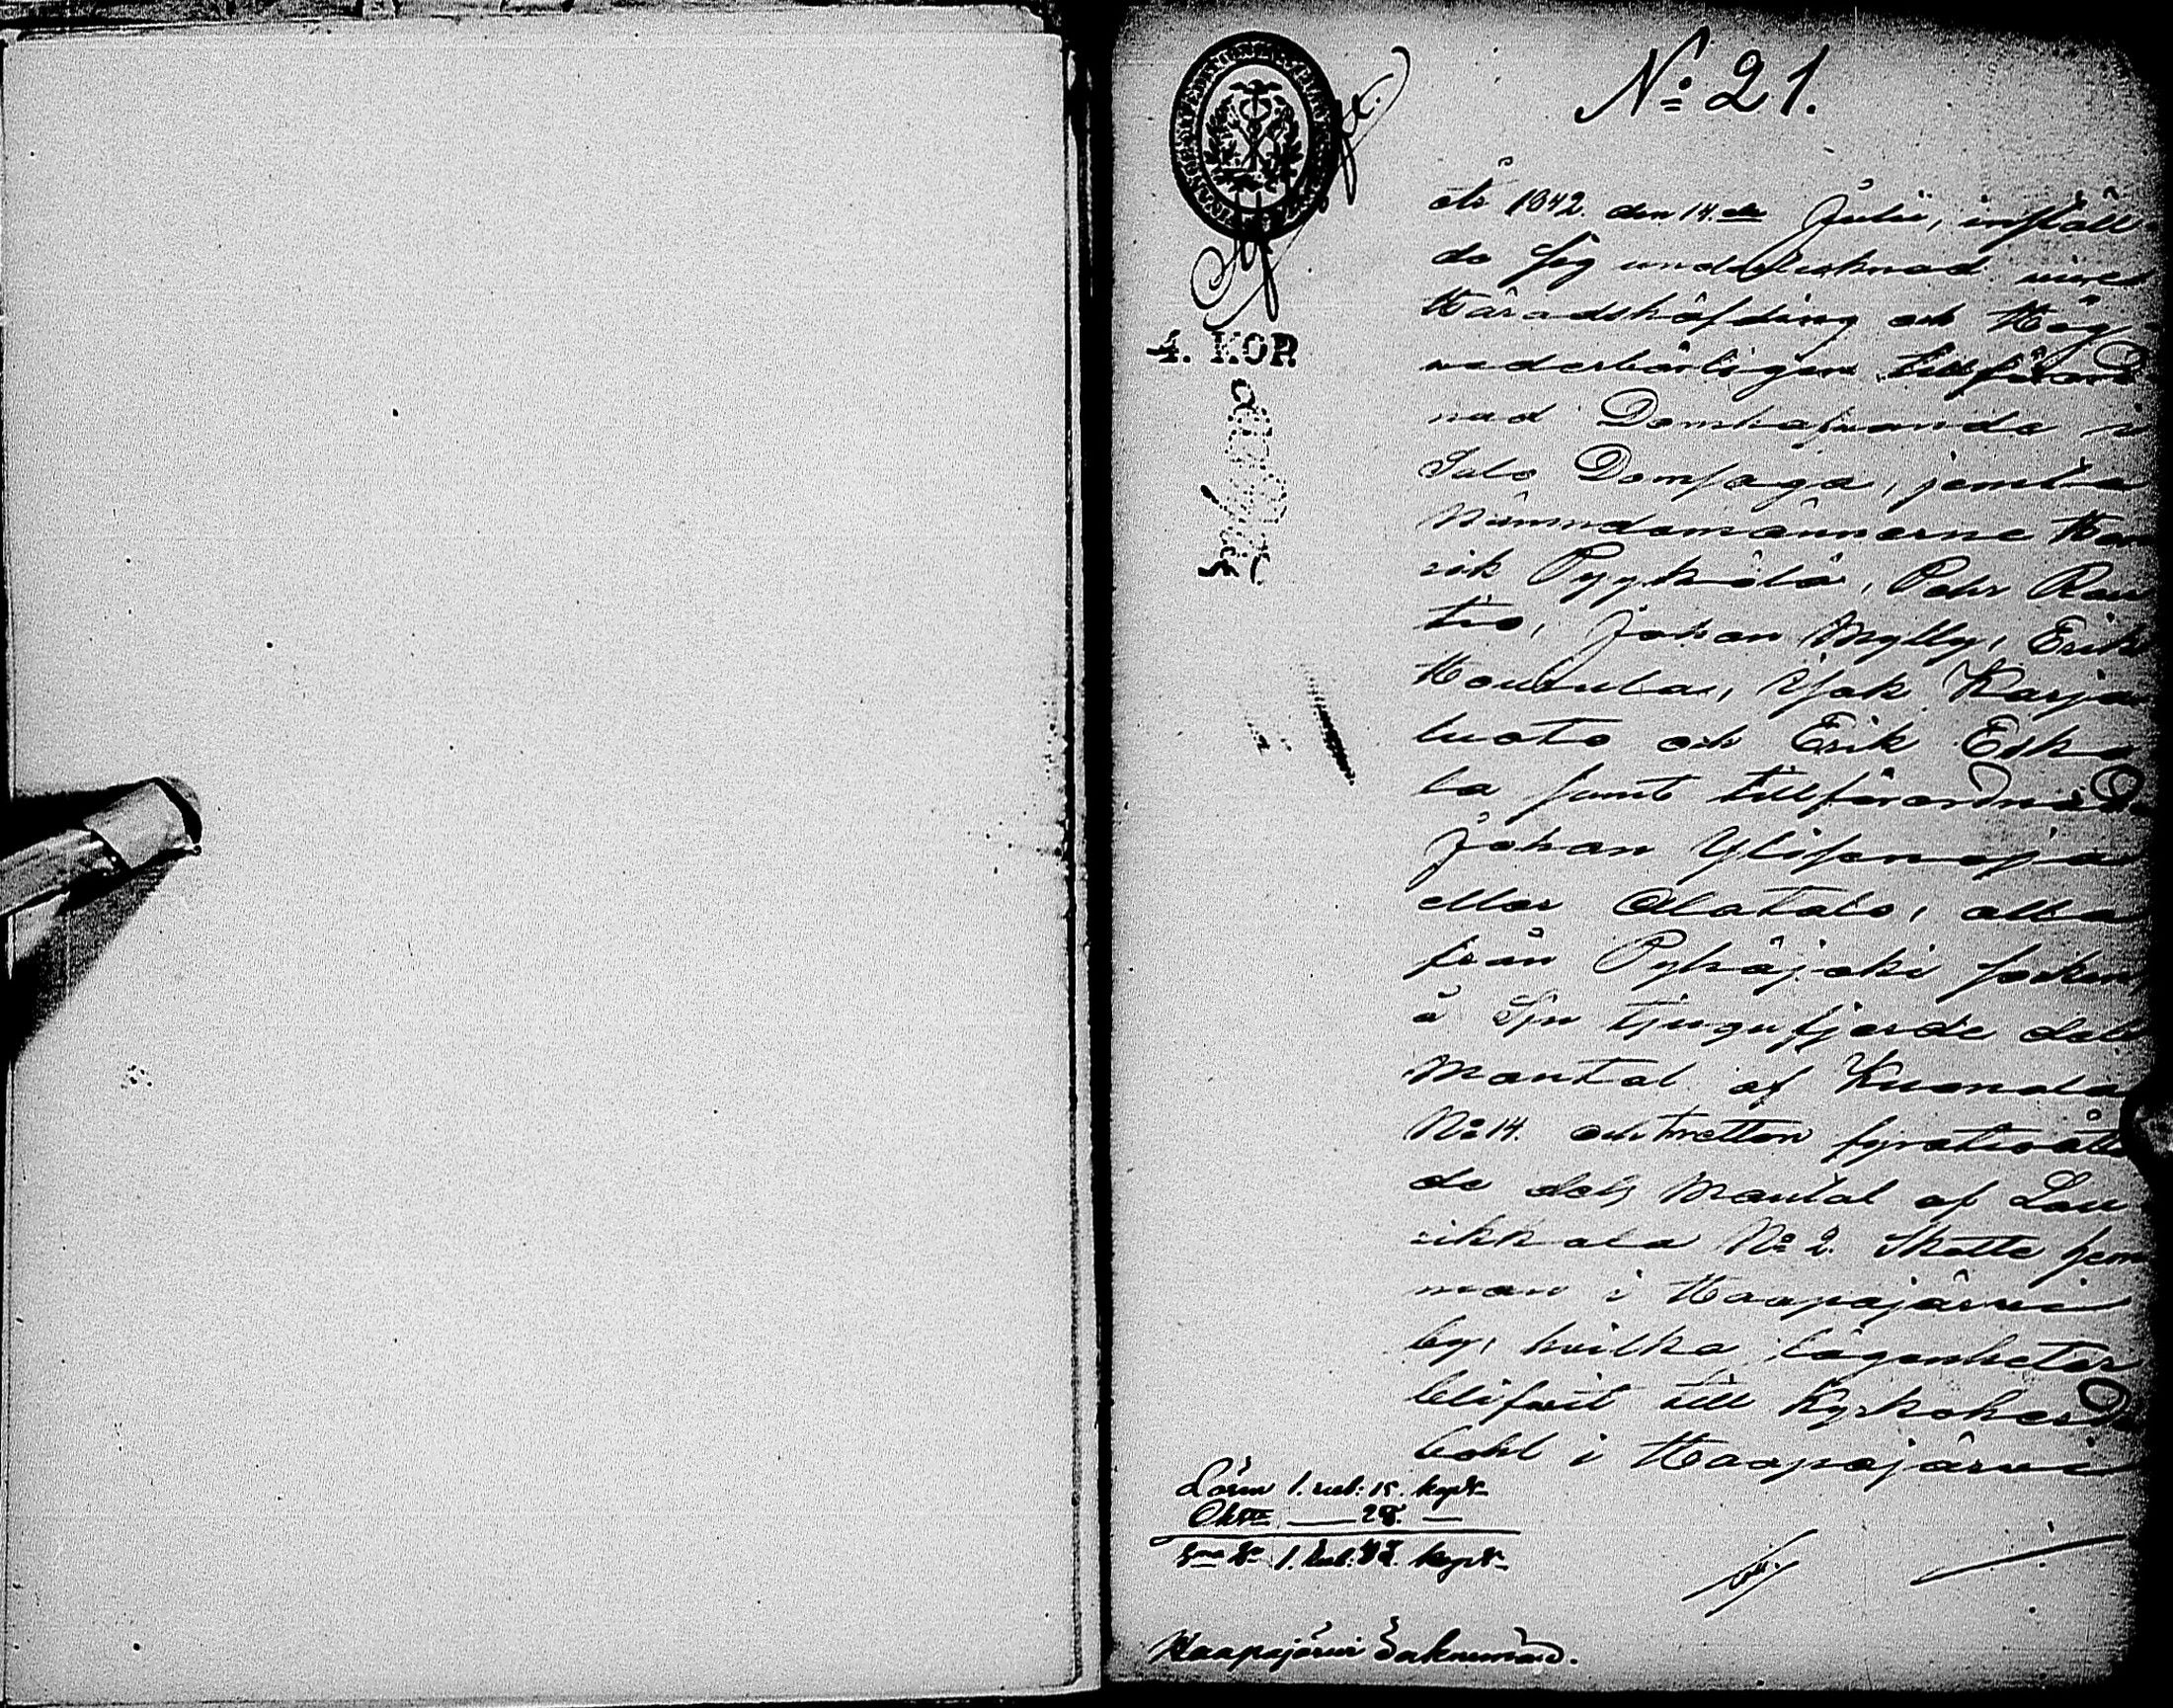 No: 21.
år 1842. den 14.de Julii, instäld
de sig undertecknad vice
Häradshöfding och Hög
vederbörligen tillförord
nad Domhafvande i
Salo Domsaga, jemte
Nämndemännerne Hen
rik Pyykölä, Pehr Rau
tio, Johan Mylly, Erik
Houtula, Isak Karja
luoto och Erik Esko
la samt tillförordnade
Johan Ylipenoja
eller Alatalo, alla
från Pyhäjoki socken
å Sju tjugufjerde dels
Mantal af Kuonala
No 14. och tretton fyratioått
de dels Mantal af Lau
rikkala No 2. Skatte hem
man i Haapajärvi
by, hvilka lägenheter
blifvit till Kyrkoherde
bohl i Haapajärvi
4. KOP.
Lösen 1. rub: 15. kopr
Chtæ — 28. —
Sma Sr 1. Rub: 43. kopr
Haapajärvi Saknemård.